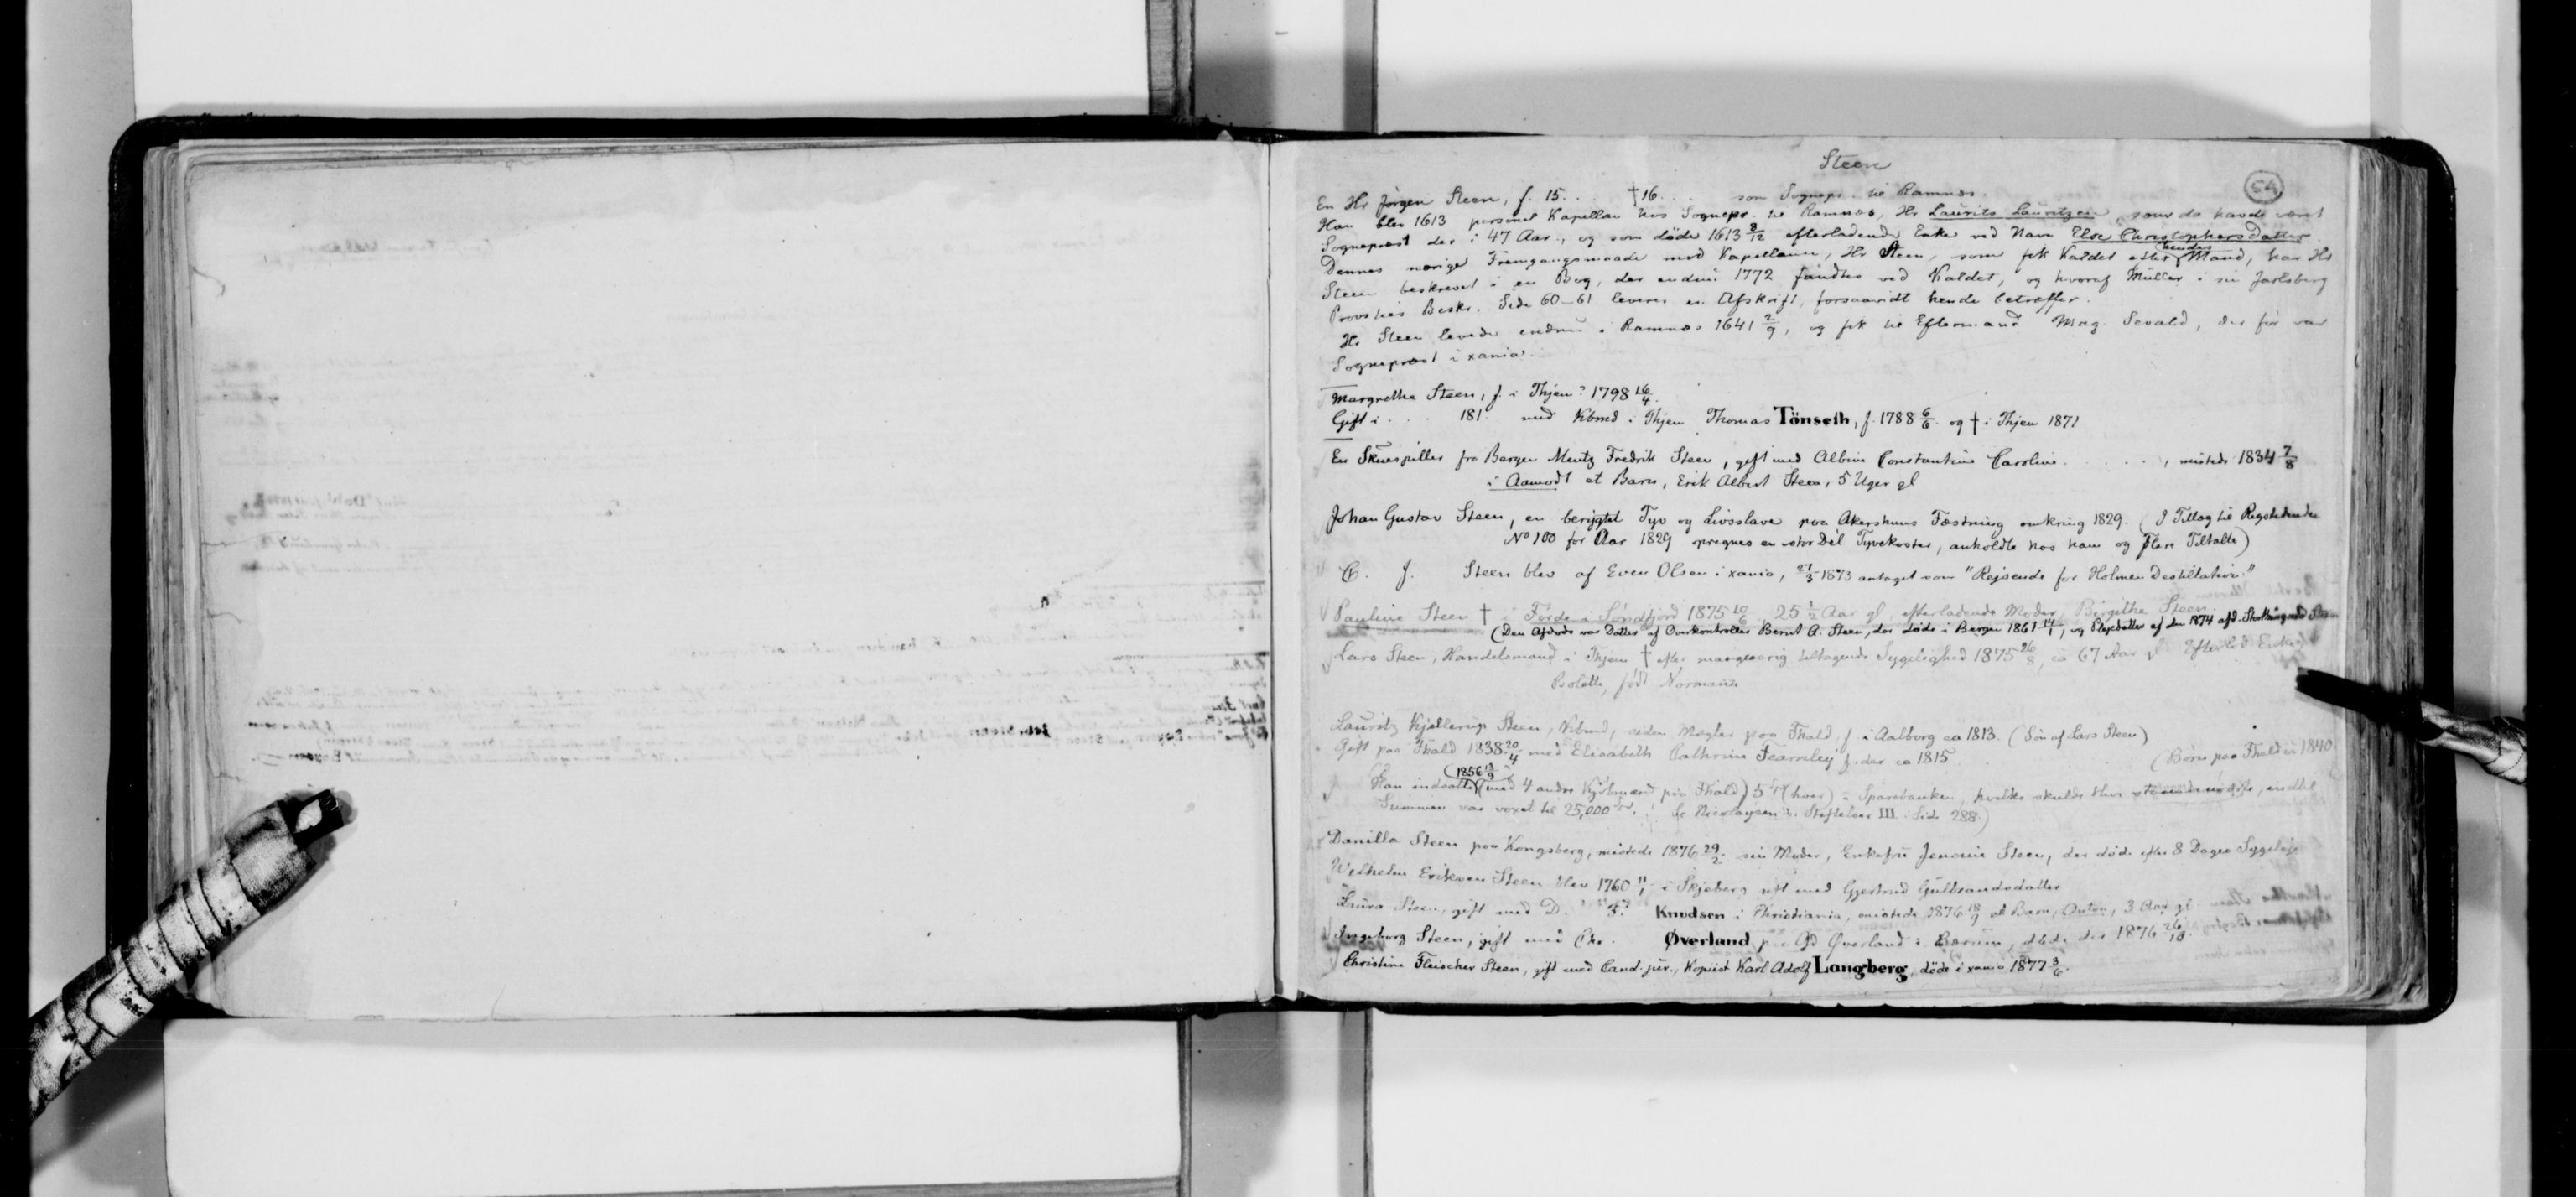 Steen
54
En Hr Jørgen Steen, f. 15 . . †16 . . som Sognepr. til Ramnæs.
Han blev 1613 personel Kapellan hos Sognepr. til Ramnæs, Hr Laurits Lauritzen, som da havde været
Sognepræst der i 47 Aar, og som døde 1613 8/12 efterladende Enke ved Navn Else Christophersdatter
Dennes Fremgangsmaade mod Kapellanen, Hr Steen, som fik Kaldet efter hendes Mand, har Hr
Steen beskrevet i en Bog, der endnu 1772 fandtes ved Kaldet, og hvoraf Müller i sin Jarlsberg
Provsties Beskr. Side 60–61 leverer en Afskrift, forsaavidt hende betræffer.
Hr Steen levede endnu i Ramnæs 1641 2/9, og fik til Eftermand Mag. Sevald, der før var
Sognepræst i xania.
Margrethe Steen, f. i Thjem? 1798 16/4.
Gift i . . . 181 . med Kbmd i Thjem Thomas Tönseth, f. 1788 6/6. og † i Thjem 1871
En Skuespiller fra Bergen Mentz Fredrik Steen, gift med Albine Constantine Caroline . . . . . , mistede 1834 7/8
i Aamodt et Barn, Erik Albert Steen, 5 Uger gl
Johan Gustav Steen, en berygtet Tyv og Livsslave paa Akershuus Fæstning omkring 1829. (I Tillæg til Rigstidende
No 100 for Aar 1829 opregnes en stor Del Tyvekoster, anholdte hos ham og flere Tiltalte)
C. J. Steen blev af Even Olsen i xania, 27/3 1873 antaget som "Rejsende for Holmen Destillation."
Pauline Steen † i Førde i Søndfjord 1875 10/6 25 1/2 Aar gl, efterladende Moder, Birgithe Steen
(Den Afdøde var Datter af Overkontrollør Bernt A. Steen, der døde i Bergen 1861 14/1, og Plejedatter af den 1874 afd.
Lars Steen, Handelsmand i Thjem † efter mangeaarig tiltagende Sygelighed 1875 26/8, ca 67 Aar gl Efterlod Enke,
Bolette, født Normann
Lauritz Kjellerup Steen, Kbmd, siden Mægler paa Fhald, f. i Aalborg ca 1813. (Søn af Lars Steen)
Gift paa Fhald 1838 20/4 med Elisabeth Cathrine Fearnley f. der ca 1815 (Børn paa Fhald in 1840.
Han indsatte (1856 13/9) (med 4 andre Kjøbmænd paa Fhald) 5 (hver) i Sparebanken, hvilke skulde blive , indtil
Summen var voxet til 25,000 . (se Nicolaysen's Stiftelser III. Side 288.)
Danilla Steen paa Kongsberg, mistede 1876 29/2. sin Moder, Enkefru Jensine Steen, der døde efter 8 Dages Sygeleje
Wilhelm Eriksen Steen blev 1760 11/1 i Skjeberg gift med Gjertrud Gulbrandsdatter
Laura Steen, gift med D. F. Knudsen i Christiania, mistede 1876 18/9 et Barn, Anton, 3 Aar gl.
Ingeborg Steen, gift med Chr. Øverland paa Gd Øverland i Bærum, døde der 1876 26/10.
Christine Fleischer Steen, gift med Cand. jur., Kopiist Karl Adolf Langberg, døde i xania 1877 3/6.